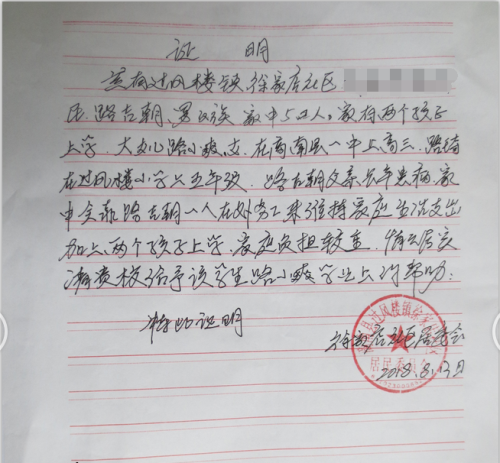 证 明
兹有过风楼镇徐家店社区
民路吉朝、男汉族 家中5口人。家有两个孩子
上学. 大女儿路小 在商南县一中上高三. 路
在过风楼小学上五年级. 路吉朝父亲长年患病,家
中全靠路吉朝一人在外务工来维持家庭生活支出
加上两个孩子上学、家庭负担较重. 情
贵校给予该学生路小 学业上的帮助:
特此证明
徐家店社区居委会
2018.8.13日
居民委员会